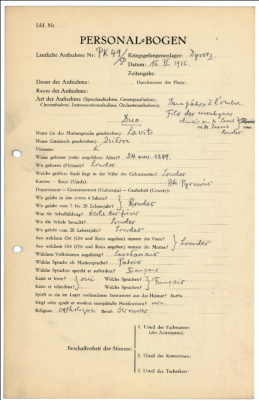 Lfd. Nr.
PERSONAL-BOGEN
Lautliche Aufnahme Nr.: PK 49/ Kriegsgefangenenlager:
Datum: 16. II. 1916
Zeitangabe:
Dauer der Aufnahme: Durchmesser der Platte:
Raum der Aufnahme:
Art der Aufnahme (Sprechaufnahme, Gesangsaufnahme, Choraufnahme, Instrumentenaufnahme, Orchesteraufnahme):
Duo
Name (in der Muttersprache geschrieben): Lavit
Name (lateinisch geschrieben):
Vorname:
Wann geboren (oder ungefähres Alter)? 24 nov. 1889.
Wo geboren (Heimat)? Lourdes
Welche größere Stadt liegt in der Nähe des Geburtsortes? Lourdes
Kanton — Kreis (Ujedz): Htes Pyrénées
Departement — Gouvernement (Gubernija) — Grafschaft (County):
Wo gelebt in den ersten 6 Jahren?
Wo gelebt vom 7. bis 20. Lebensjahr? Lourdes
Was für Schulbildung?
Wo die Schule besucht? Lourdes
Wo gelebt vom 20. Lebensjahr? Lourdes
Aus welchem Ort (Ort und Kreis angeben) stammt der Vater?
Aus welchem Ort (Ort und Kreis angeben) stammt die Mutter? Lourdes
Welchem Volksstamm angehörig?
Welche Sprache als Muttersprache? Patois
Welche Sprachen spricht er außerdem? Français
Kann er lesen? oui Welche Sprachen?
Kann er schreiben? Welche Sprachen? Français
Spielt er ein im Lager vorhandenes Instrument aus der Heimat? non
Singt oder spielt er modern europäische Musikweisen? non
Religion: catholique Beruf:
Beschaffenheit der Stimme:
1. Urteil des Fachmannes
(des Assistenten):
2. Urteil des Kommissars:
3. Urteil des Technikers: